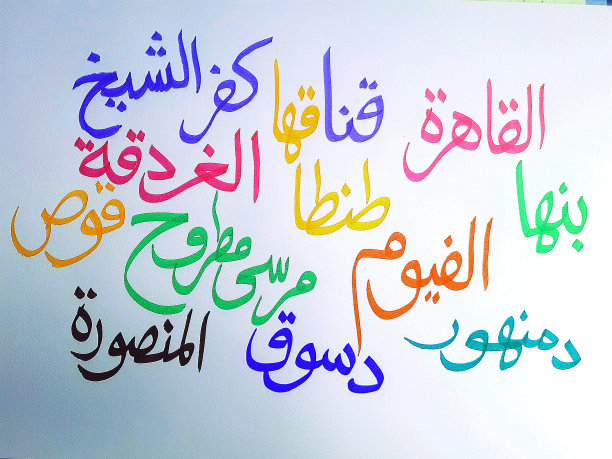 القاهرة قنا قها كفر الشيخ
بنها طنطا الغردقة قوص
الفيوم مرسى مطروح
دمنهور دسوق المنصورة